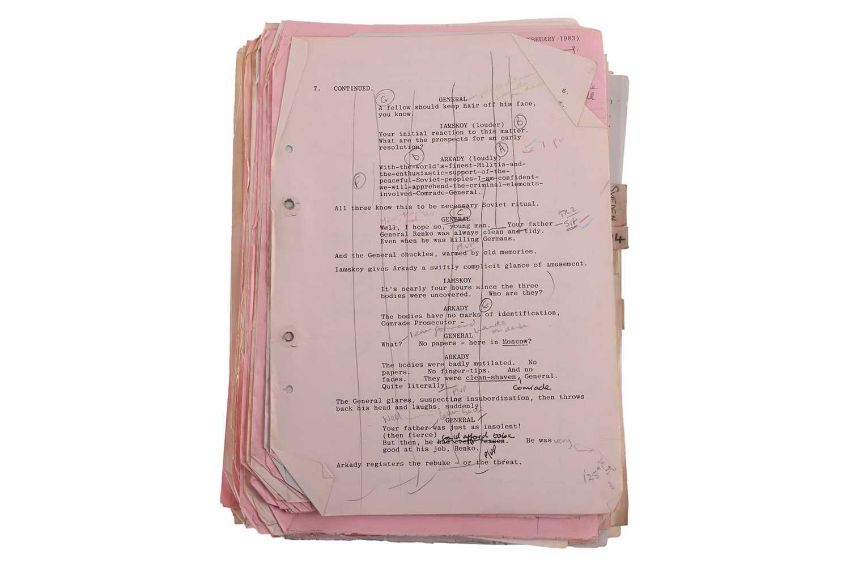 FEBRUARY 1983)
7. CONTINUED. 6.
G
GENERAL
A fellow should keep hair off his face,
you know.
IAMSKOY (louder) B
Your initial reaction to this matter.
What are the prospects for an early
resolution? A
D ARKADY (loudly)
With-the-world's-finest-Militia-and-
the-enthusiastic-support-of-the-
peaceful-Soviet-peoples-I-am-confident-
we-will-apprehend-the-criminal-elements-
involved-Comrade-General.
All three know this to be necessary Soviet ritual.
C
GENERAL
Well, I hope so, young man. Your father Sit
General Renko was always clean and tidy.
Even when he was killing Germans.
And the General chuckles, warmed by old memories.
Iamskoy gives Arkady a swiftly complicit glance of amusement.
IAMSKOY
It's nearly four hours since the three
bodies were uncovered. Who are they?
ARKADY
The bodies have no marks of identification,
Comrade Prosecutor -
GENERAL
What? No papers - here in Moscow?
ARKADY
The bodies were badly mutilated. No
papers. No finger-tips. And no
faces. They were clean-shaven, General.
Quite literally. Comrade
The General glares, suspecting insubordination, then throws
back his head and laughs, suddenly.
Well
GENERAL
Your father was just as insolent!
(then fierce) could afford to be
But then, he He was very
good at his job, Renko.
Arkady registers the rebuke - or the threat.